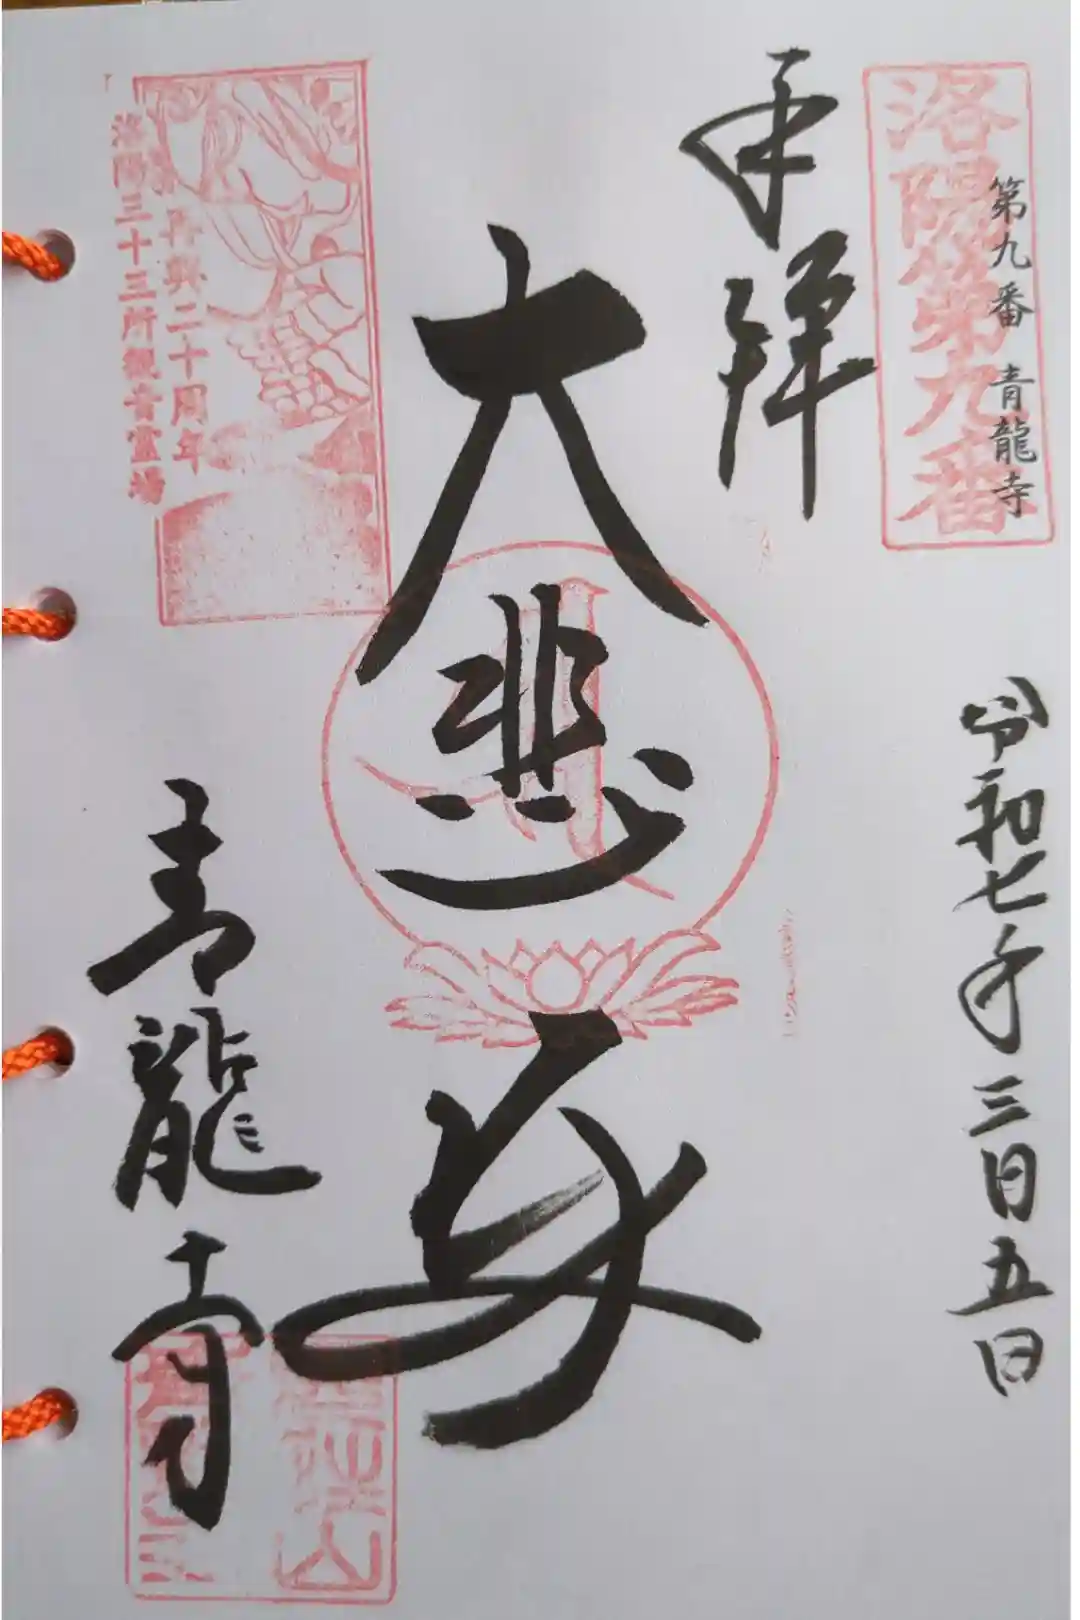 洛陽第九番
第九番 青龍寺
奉拝
令和七年三月五日
大悲殿
再興二十周年
洛陽三十三所観音霊場
青龍寺